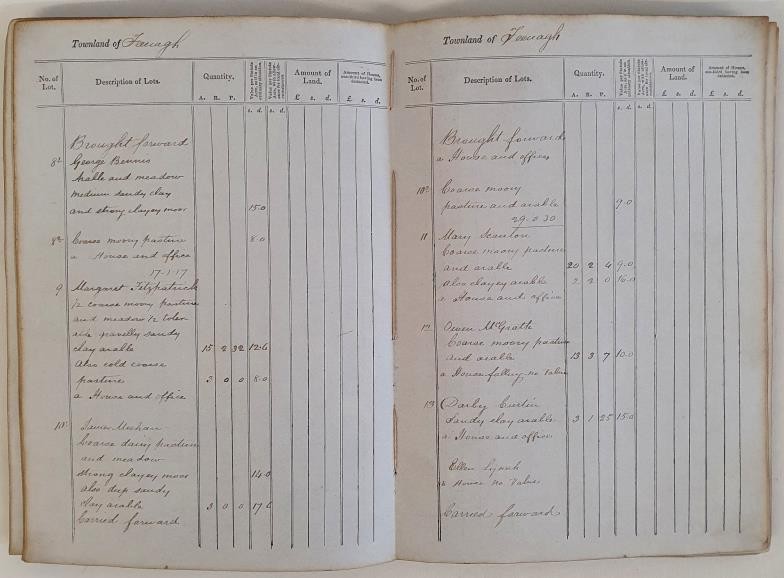 Townland of Feenagh
No. of Lot.
Description of Lots.
Quantity.
Amount of Land.
Amount of Houses, one-third having been deducted.
A. R. P.
s. d. s. d.
£ s. d. £ s. d.
Brought forward
8a George Bennis
Arable and meadow
medium sandy clay
and strong clayey moor 15.0
8b Coarse moory pasture 8.0
a House and office
17.1.17
9 Margaret Fitzpatrick
1/2 coarse moory pasture
and meadow 1/2 toler-
able gravelly sandy
clay arable 15 2 32 12.6
Also cold coarse
pasture 3 0 0 8.0
a House and office
10a James Meehan
Coarse dairy pasture
and meadow
strong clayey moor 14.0
Also deep sandy
clay arable 3 0 0 17.6
Carried forward
Townland of Feenagh
No. of Lot.
Description of Lots.
Quantity.
Amount of Land.
Amount of Houses, one-third having been deducted.
A. R. P.
s. d. s. d.
£ s. d. £ s. d.
Brought forward
a House and offices
10b Coarse moory
pasture and arable 9.0
29.0.30
11 Mary Scanlon
Coarse moory pasture
and arable 20 2 4 9.0
Also clayey arable 2 2 0 16.0
a House and office
12 Owen McGrath
Coarse moory pasture
and arable 13 3 7 10.0
a House falling no Value
13 Darby Curtin
Sandy clay arable 3 1 25 15.0
a House and office
Ellen Lynch
a House no Value
Carried forward